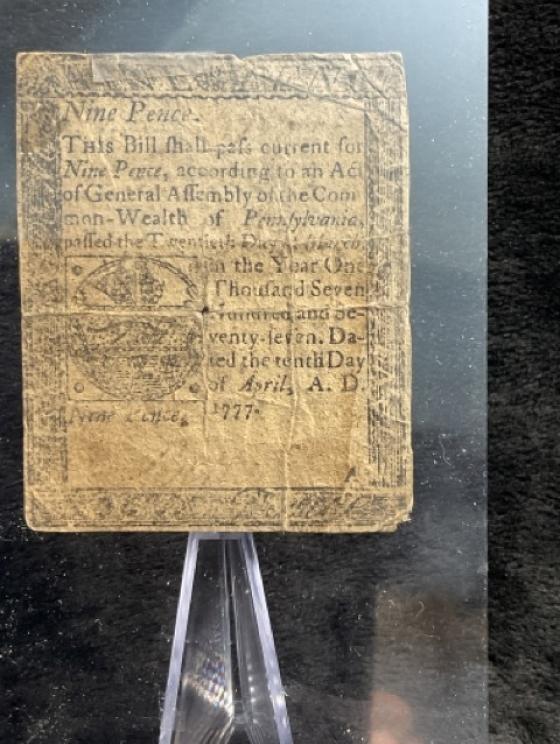 Nine Pence.
THIS Bill shall pass current for
Nine Pence, according to an Act
of General Assembly of the Com
mon-Wealth of Pennsylvania,
passed the Twentieth Day of March
in the Year One
Thousand Seven
Hundred and Se-
venty-seven. Da-
ted the tenth Day
of April, A. D.
1777.
Nine Pence.